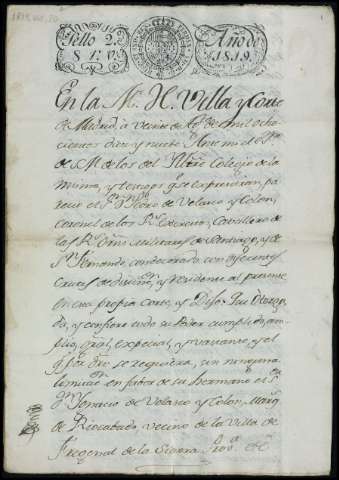 Sello 2.
Año de
1819.
En la M. H. Villa y Corte
de Madrid, à veinte de de mil ocho
cientos diez y nueve Ante mi el
de S.M. de los del Iltre Colegio de la
misma, y testigos q.e se expresaràn, pa
recio el S.r D.n Pedro de Velasco y Colon,
Coronel de los R.s Exercitos, Cavallero de
las R.s Orns Militares de Santiago, y de
S.n Fernando, condecorado con diferentes
Cruces de distinc.on y residente al presente
en esta propia Corte, y Dijo: Que Otorga
da, y confiere todo su Poder cumplido, am
plio, gral, especial, y y el
q.e por dro se requiera, sin ninguna
limitac.on en fabor de su hermano el S.r
D.n Ignacio de Velasco y Colon, Marq.s
de Riocabado, vecino de la Villa de
Fregenal de la Sierra Prov.a